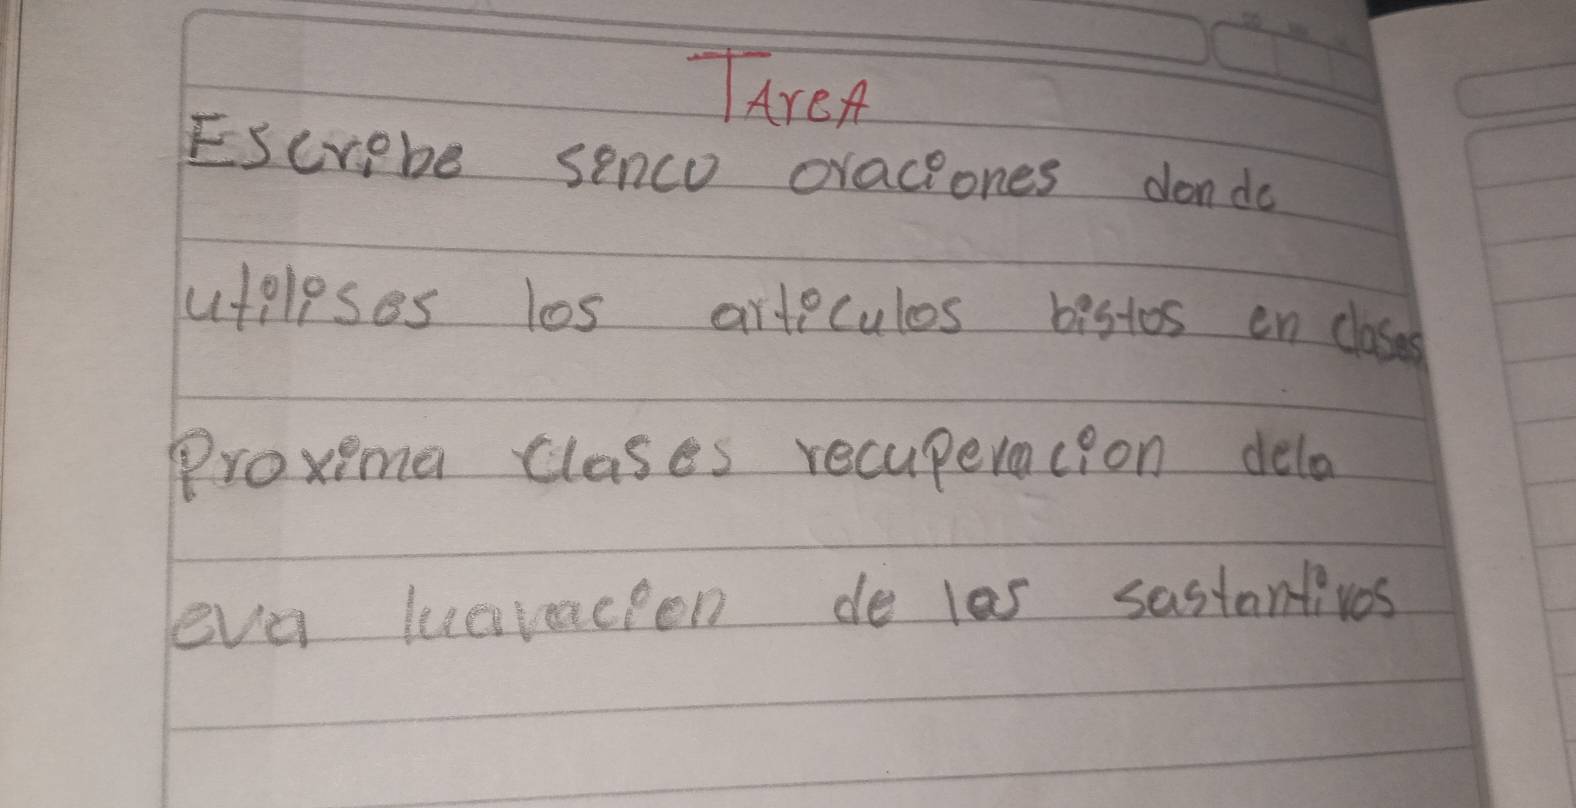 TAreA
Escribe sinco oraciones donde
utilises los articulos bistos en clases
Proxima clases recuperacion dela
eva luavacion de los sastantivos